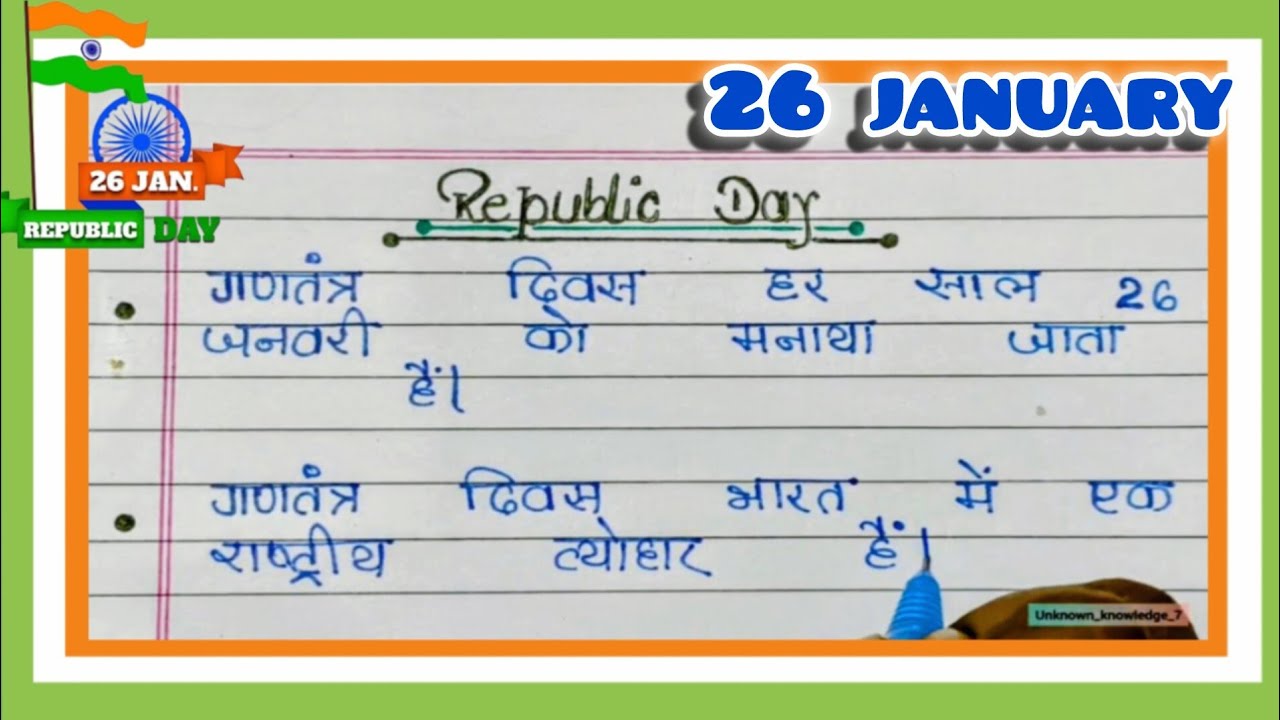 26 JANUARY
26 JAN.
REPUBLIC DAY
Republic Day
गणतंत्र दिवस हर साल 26
जनवरी को मनाथा जाता
हैं।
गणतंत्र दिवस भारत में एक
राष्ट्रीय त्योहार हैं।
Unknown_knowledge_7